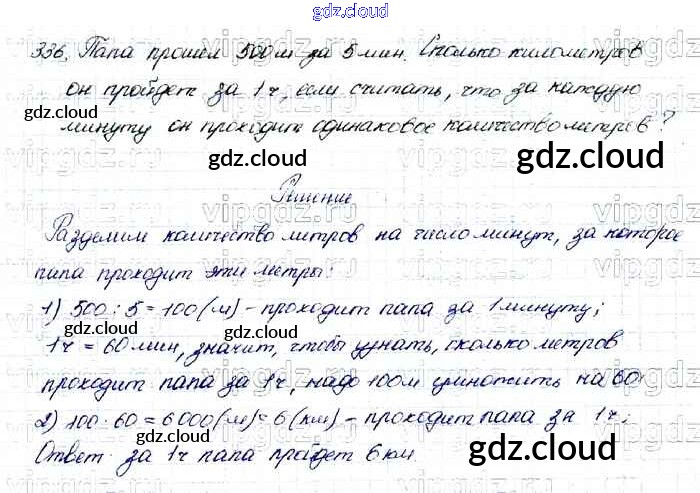 gdz.cloud
336. Папа прошел 500 м за 5 мин. Сколько километров
он пройдет за 1 ч, если считать, что за каждую
минуту он проходит одинаковое количество метров?
gdz.cloud
gdz.cloud
Решение
Разделим количество метров на число минут, за которое
папа проходит эти метры:
gdz.cloud
gdz.cloud
1) 500 : 5 = 100 (м) - проходит папа за 1 минуту;
1 ч = 60 мин, значит, чтобы узнать, сколько метров
проходит папа за 1 ч, надо 100 м умножить на 60
gdz.cloud
2) 100 · 60 = 6000 (м) = 6 (км) - проходит папа за 1 ч;
gdz.cloud
gdz.cloud
Ответ за 1 ч папа пройдет 6 км.